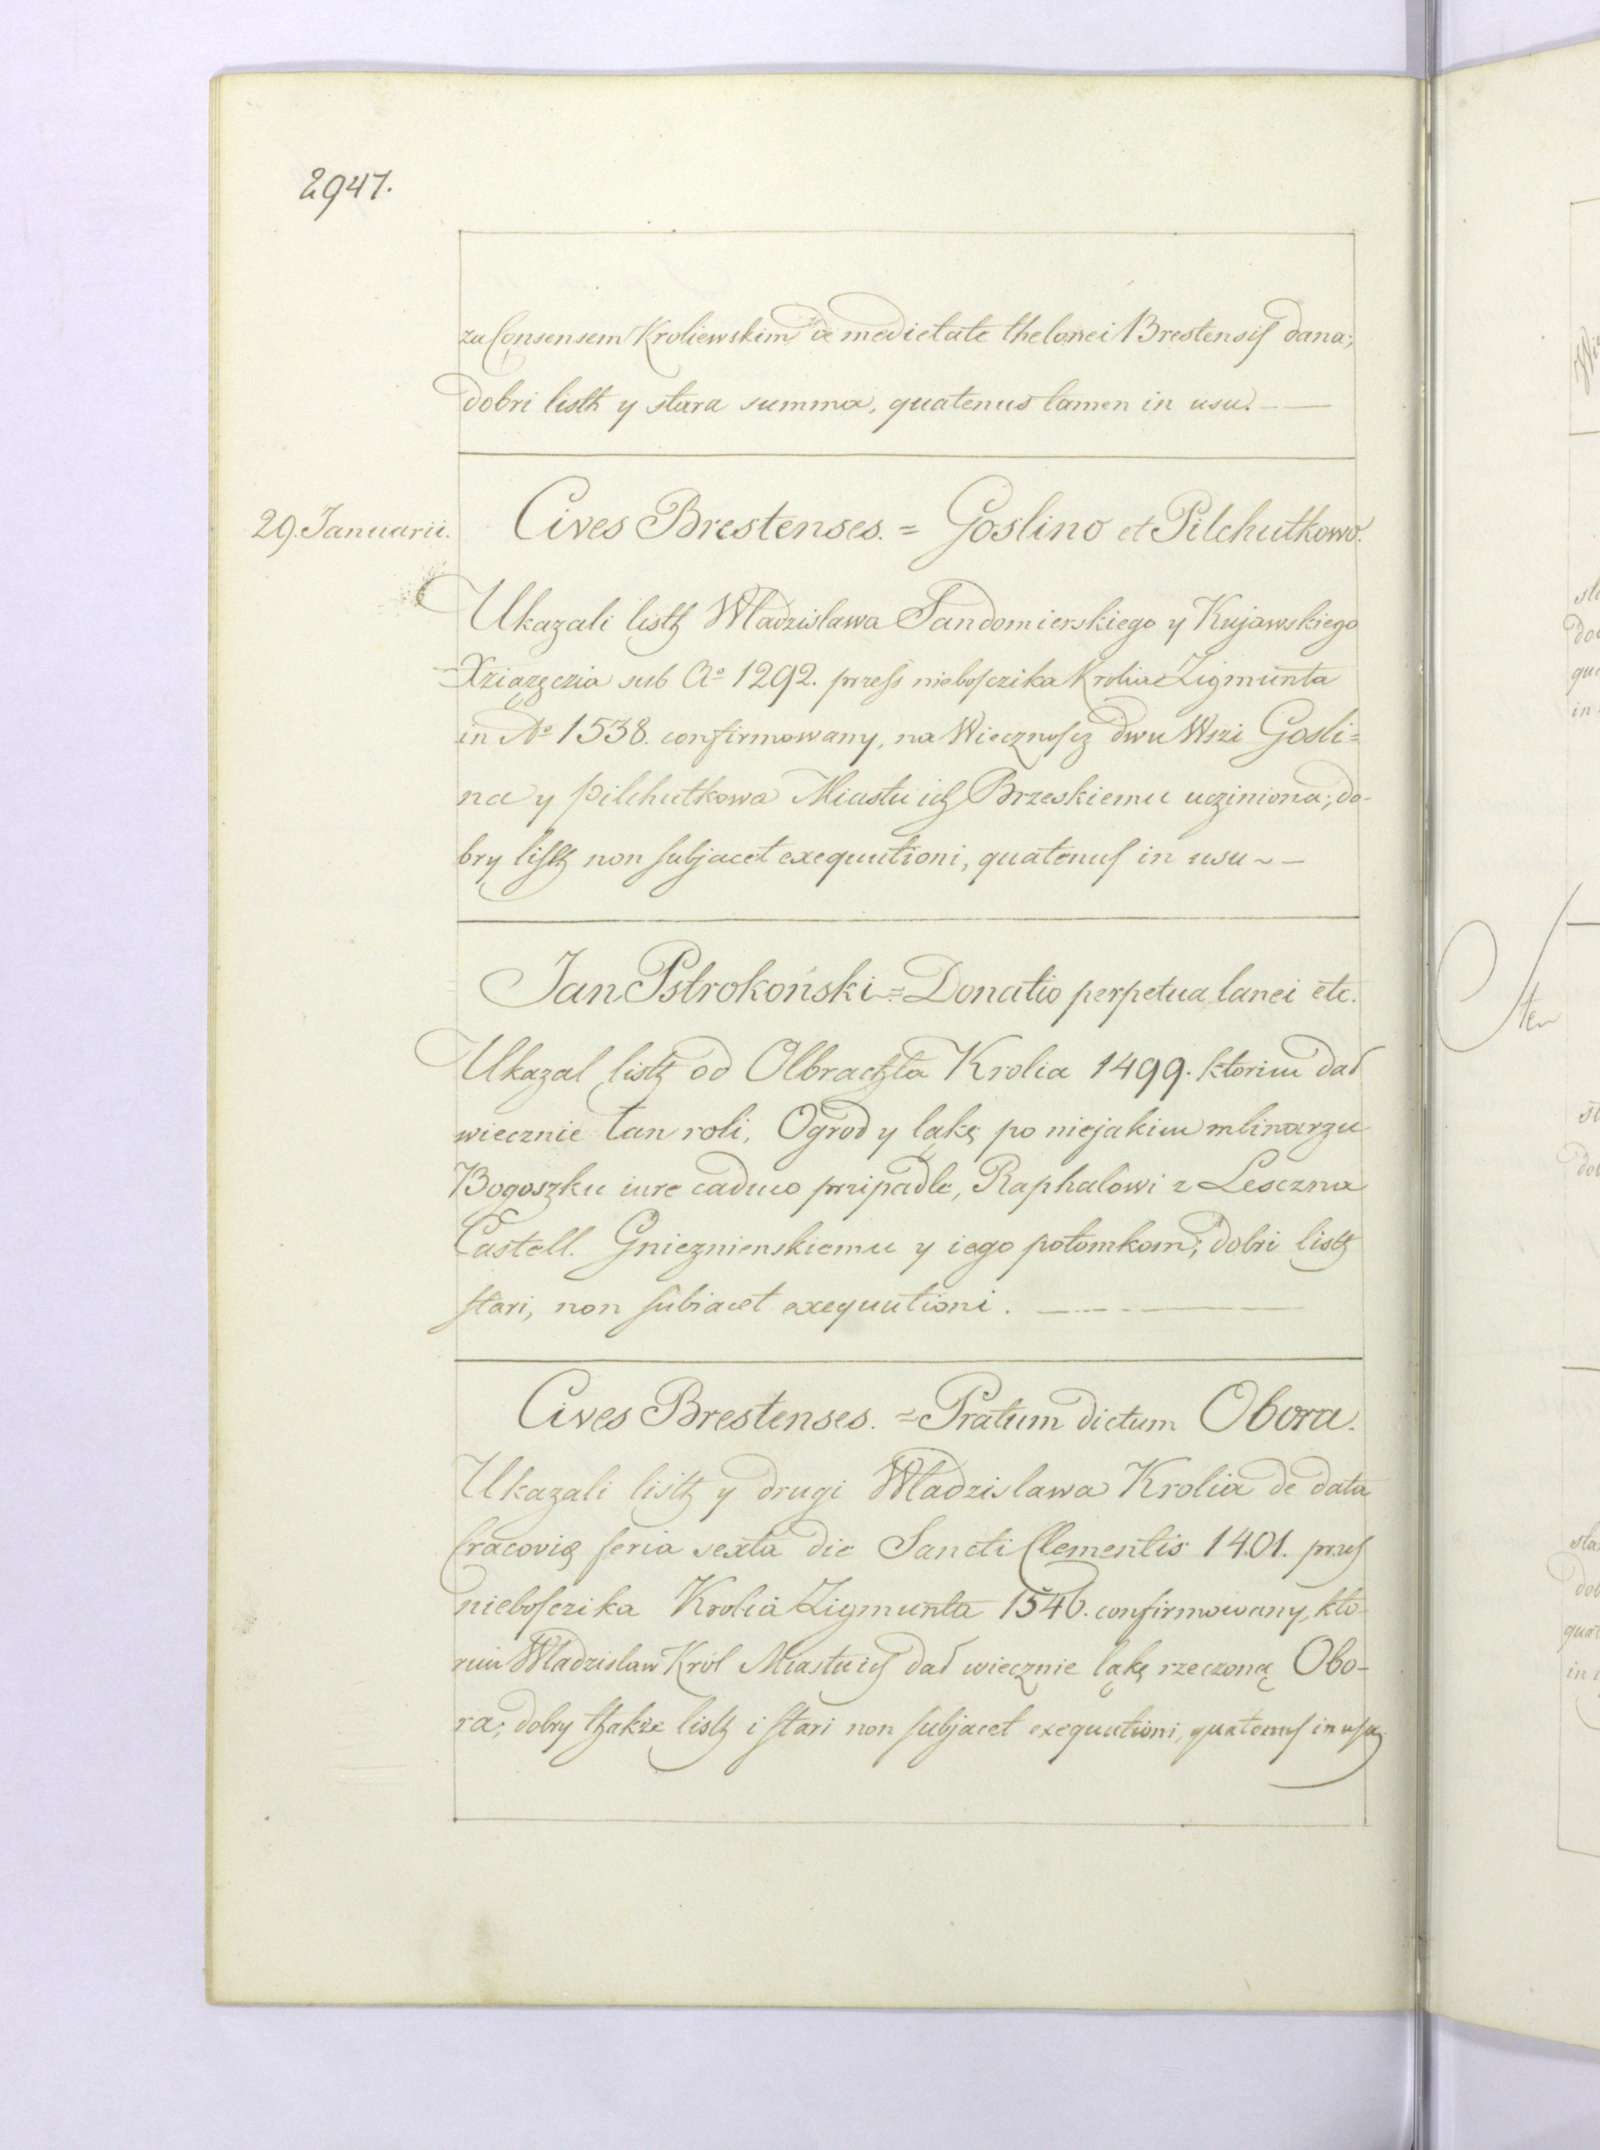 2947.
za Consensem Kroliewskim de medietate thelonei Brestensis dana;
dobri listh y stara summa, quatenus tamen in usu.
29. Januarii.
Cives Brestenses. = Goslino et Pilchutkowo.
Ukazali listh Wladzislawa Sandomierskiego y Kujawskiego
Xziązęczia sub Ao 1292. przess niebosczika Krolia Zigmunta
in Ao 1538. confirmowany, na Wiecznoscz dwu Wszi Gosli=
na y Pilchutkowa Miastu ich Brzeskiemu ucziniona; do-
bry listh non subjacet exequutioni, quatenus in usu ~ —
Jan Pstrokoński = Donatio perpetua lanei etc.
Ukazal listh od Olbrachta Krolia 1499. ktorim dał
wiecznie łan roli, Ogrod y ląkę po niejakim mlinarzu
Bogoszku iure caduco przipadle, Raphalowi z Leszczna
Castell. Gnieznienskiemu y iego potomkom; dobri listh
stari, non subiacet exequutioni.
Cives Brestenses. = Pratum dictum Obora.
Ukazali listh y drugi Wladzislawa Krolia de data
Cracovię feria sexta die Sancti Clementis 1401. przes
nieboscika Krolia Zigmunta 1546. confirmowany, kto-
rim Wladzislaw Król Miastu ich dał wiecznie ląkę rzeczoną Obo-
ra; dobry thakże listh i stari non subjacet exequutioni, quatenus in usu.